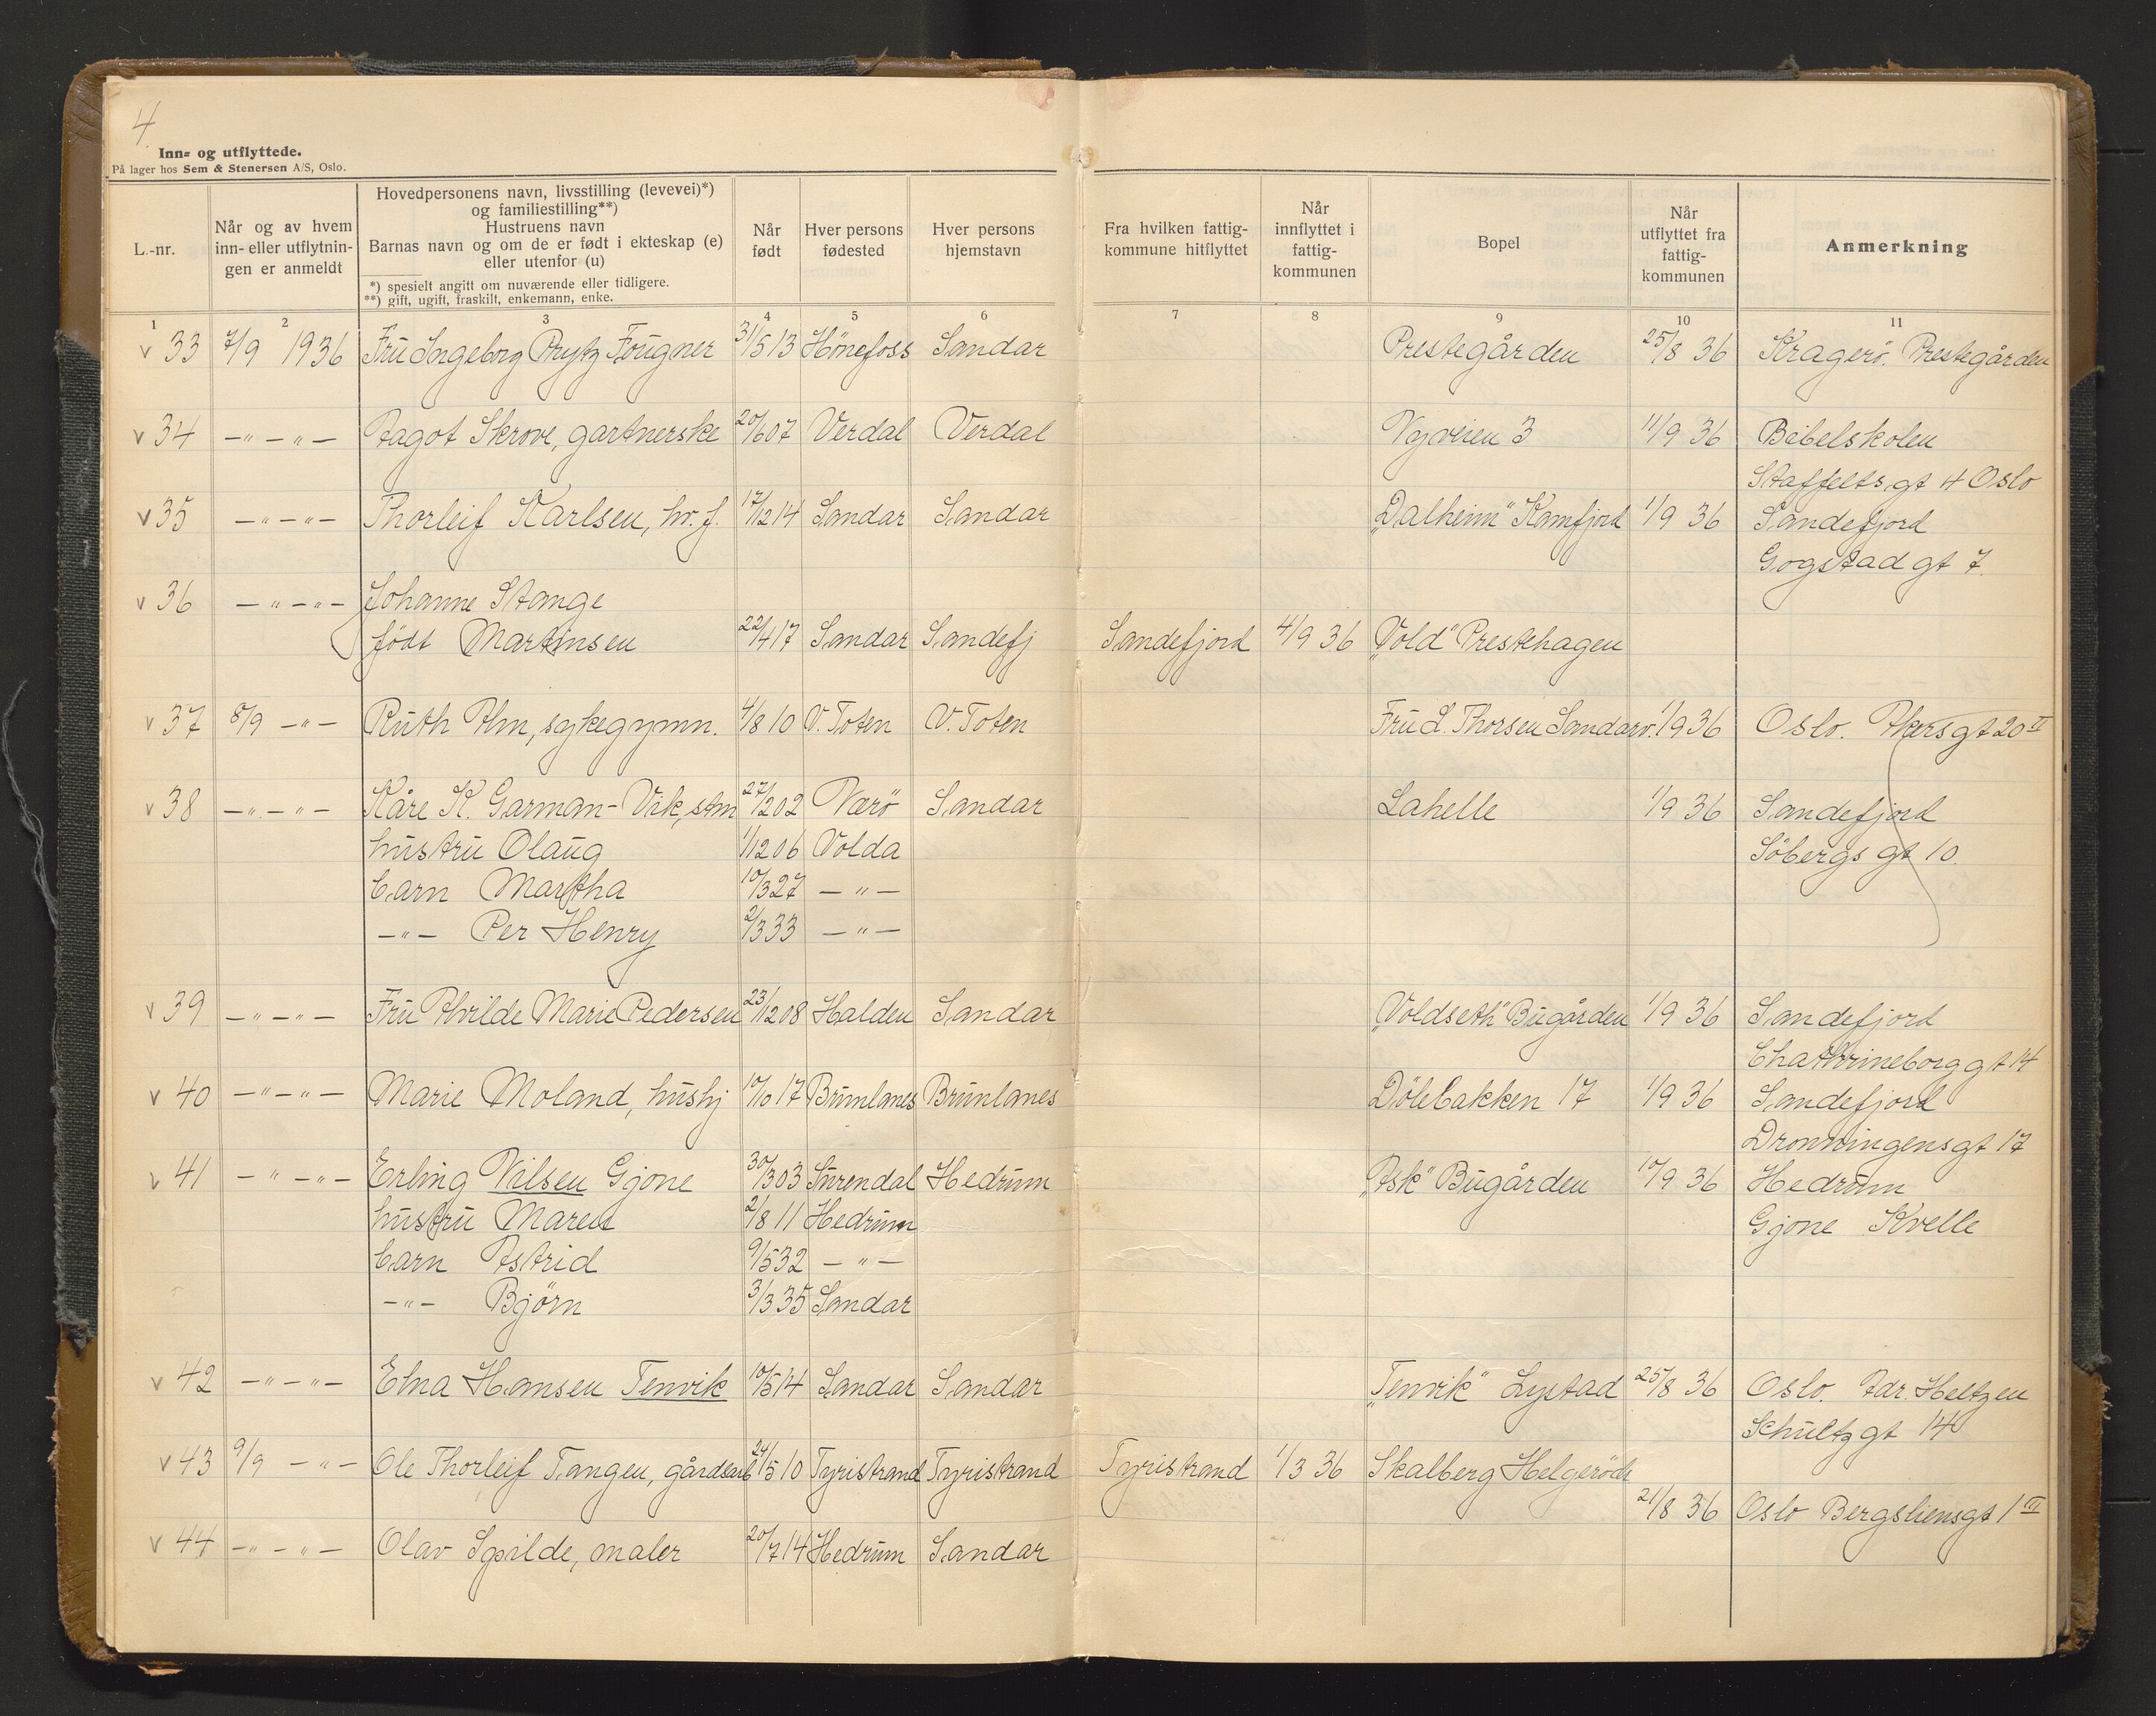 4
Inn- og utflyttede.
På lager hos Sem & Stenersen A/S, Oslo.
L.-nr.
Når og av hvem
inn- eller utflytnin-
gen er anmeldt
Hovedpersonens navn, livsstilling (levevei)*)
og familiestilling**)
Hustruens navn
Barnas navn og om de er født i ekteskap (e)
eller utenfor (u)
*) spesielt angitt om nuværende eller tidligere.
**) gift, ugift, fraskilt, enkemann, enke.
Når
født
Hver persons
fødested
Hver persons
hjemstavn
Fra hvilken fattig-
kommune hitflyttet
Når
innflyttet i
fattig-
kommunen
Bopel
Når
utflyttet fra
fattig-
kommunen
Anmerkning
1 2 3 4 5 6 7 8 9 10 11
v 33 7/9 1936 Fru Ingeborg Prytz Fougner 31/5 13 Hönefoss Sandar Prestegården 25/8 36 Kragerö. Prestegården
v 34 -"-"- Aagot Skrove, gartnerske 20/6 07 Verdal Verdal Nyveien 3 11/9 36 Bibelskolen
Staffelts gt 4 Oslo
v 35 -"-"- Thorleif Karlsen, hv. f. 17/12 14 Sandar Sandar "Dalheim" Kamfjord 1/9 36 Sandefjord
Gogstad gt 7.
v 36 -"-"- Johanne Stange
født Martinsen 22/4 17 Sandar Sandefj Sandefjord 4/9 36 "Vold" Prestehagen
v 37 8/9 -"- Ruth Alm, sykegymn. 4/8 10 V. Toten V. Toten Fru L. Thorsen Sandarv. 1/9 36 Oslo. Akersgt 20 II
v 38 -"-"- Kåre K. Garman-Vik, stm 27/2 02 Værö Sandar Lahelle 1/9 36 Sandefjord
hustru Olaug 1/12 06 Volda Söbergs gt 10.
barn Martha 10/3 27 -"-
-"- Per Henry 2/3 33 -"-
v 39 -"-"- Fru Alvilde Marie Pedersen 23/12 08 Halden Sandar "Voldseth" Bugården 1/9 36 Sandefjord
Chathrineborggt 14
v 40 -"-"- Marie Moland, hushj 10/10 17 Brunlanes Brunlanes Dölebakken 17 1/9 36 Sandefjord
Dronningensgt 17
v 41 -"-"- Erling Nilsen Gjone 30/3 03 Surendal Hedrum "Ask" Bugården 10/9 36 Hedrum
hustru Maren 2/8 11 Hedrum Gjone Kvelle
barn Astrid 9/5 32 -"-
-"- Björn 3/3 35 Sandar
v 42 -"-"- Elna Hansen Tenvik 10/5 14 Sandar Sandar "Tenvik" Lystad 25/8 36 Oslo. Adr. Heltzen
Schultzgt 14
v 43 9/9 -"- Ole Thorleif Tangen, gårdsarb 24/5 10 Tyristrand Tyristrand Tyristrand 1/3 36 Skalberg Helgeröd
21/8 36 Oslo Bergsliensgt 1 III
v 44 -"-"- Olav Spilde, maler 20/7 14 Hedrum Sandar